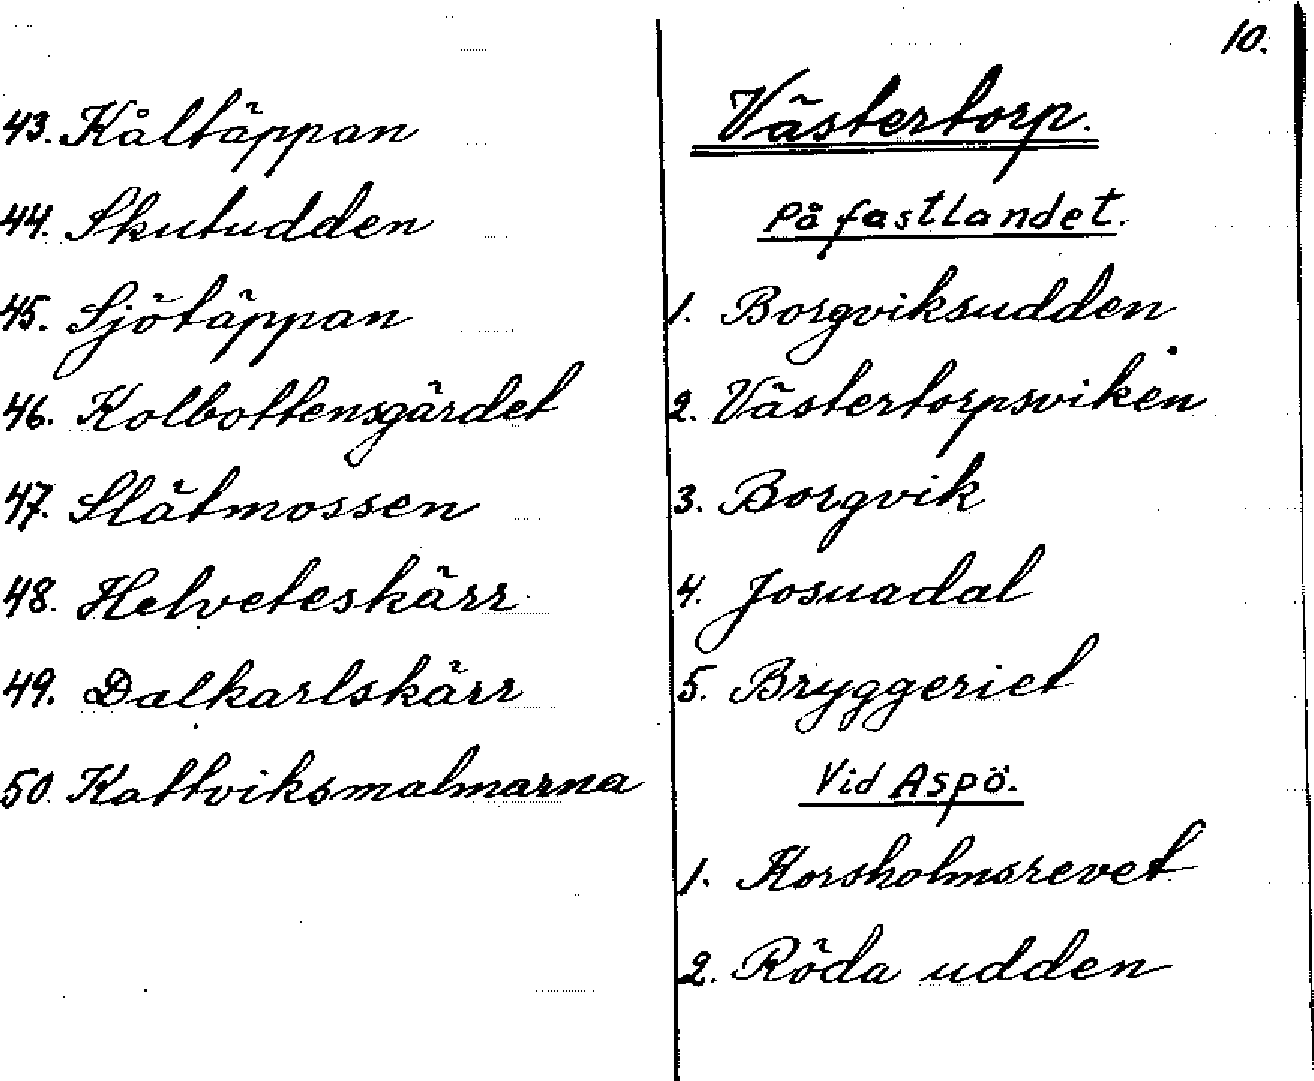 43. Kåltäppan
44. Skutudden
45. Sjötäppan
46. Kolbottensgärdet
47. Slåtmossen
48. Helveteskärr
49. Dalkarlskärr
50. Kattviksmalmarna
10.
Västertorp.
På fastlandet.
1. Borgviksudden
2. Västertorpsviken
3. Borgvik
4. Josuadal
5. Bryggeriet
Vid Aspö.
1. Korsholmsrevet
2. Röda udden